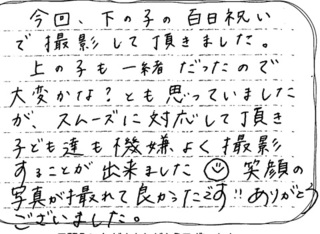 今回、下の子の百日祝い
で撮影して頂きました。
上の子も一緒だったので
大変かな?とも思っていました
が、スムーズに対応して頂き
子ども達も機嫌よく撮影
することが出来ました☺笑顔の
写真が撮れて良かったです!!ありがとう
ございました。